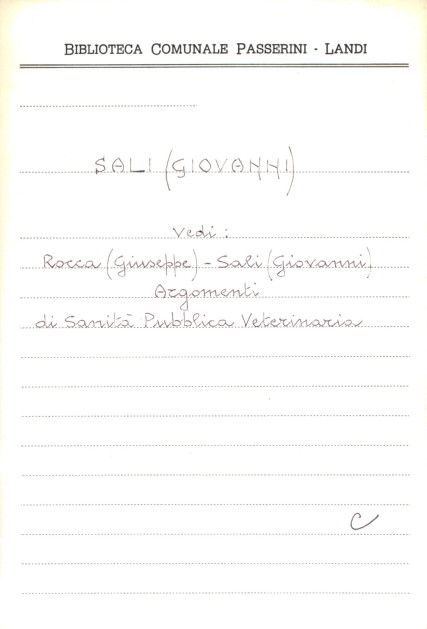 BIBLIOTECA COMUNALE PASSERINI - LANDI
SALI (GIOVANNI)
Vedi :
Rocca (Giuseppe) - Sali (Giovanni)
Argomenti
di Sanità Pubblica Veterinaria
C